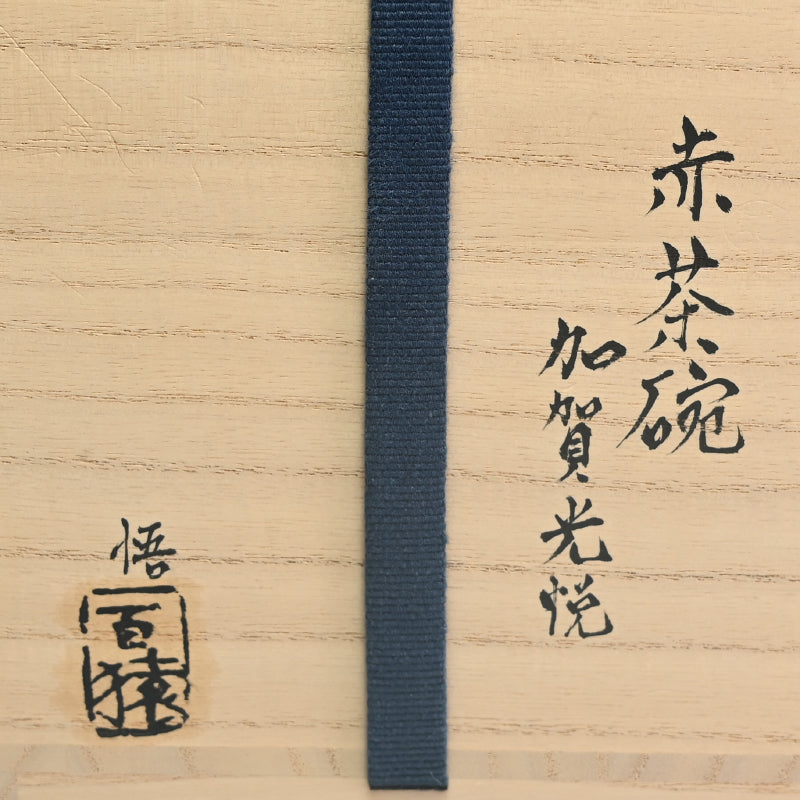 赤茶碗
加賀光悦
悟
百猿